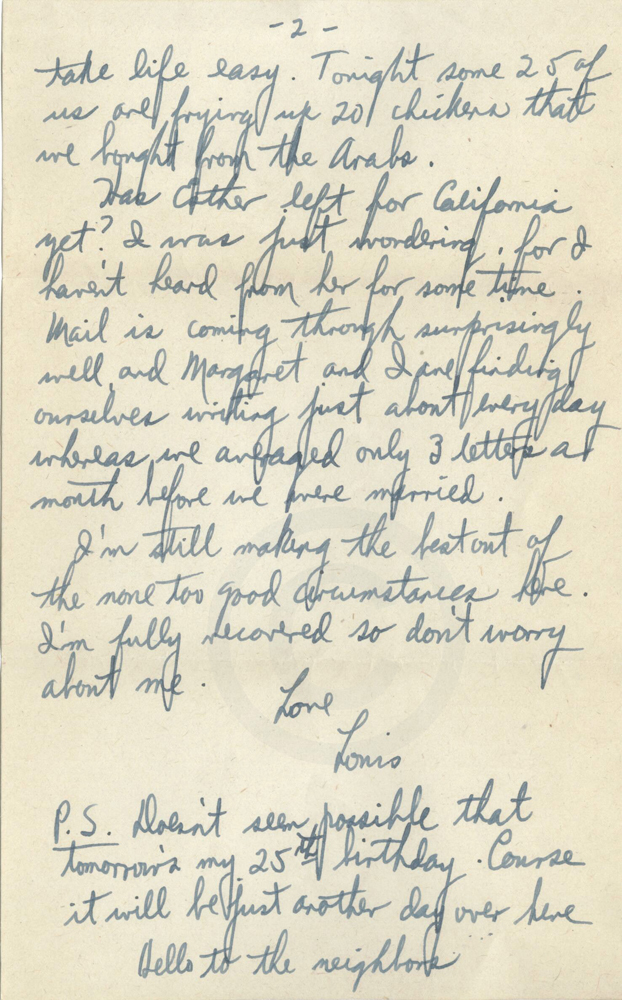 - 2 -
take life easy. Tonight some 25 of
us are frying up 20 chickens that
we bought from the Arabs.
Has Esther left for California
yet? I was just wondering, for I
haven't heard from her for some time.
Mail is coming through surprisingly
well and Margaret and I are finding
ourselves writing just about every day
whereas we averaged only 3 letters a
month before we were married.
I'm still making the best out of
the none too good circumstances here.
I'm fully recovered so don't worry
about me.
Love
Louis
P.S. Doesn't seem possible that
tomorrow's my 25th birthday. Course
it will be just another day over here
Hello to the neighbors